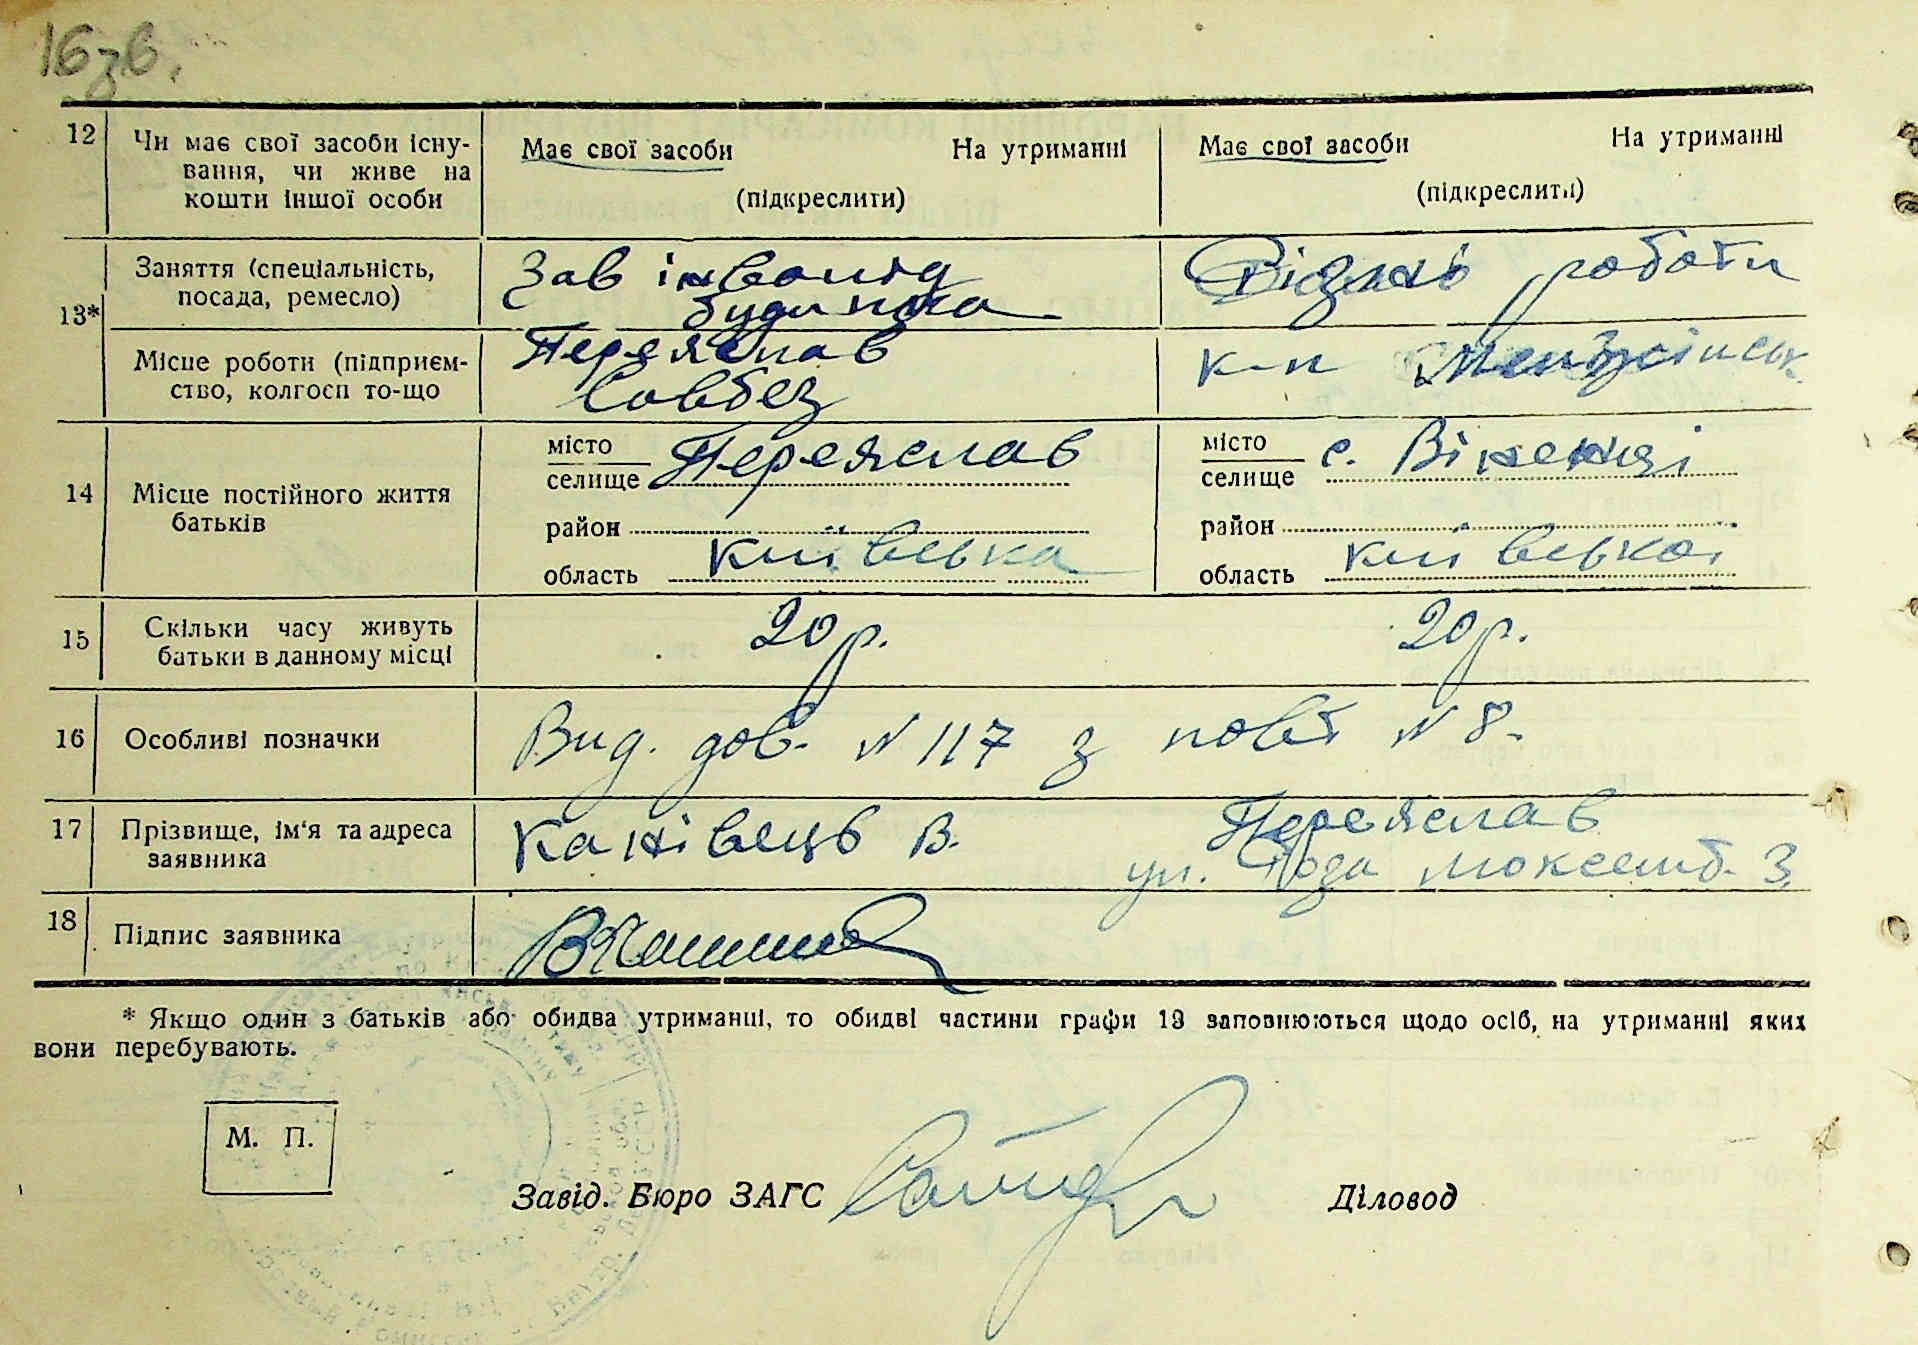 16зв.
12 Чи має свої засоби існу-
вання, чи живе на
кошти іншої особи
Має свої засоби На утриманні
(підкреслити)
Має свої засоби На утриманні
(підкреслити)
13*
Заняття (спеціальність,
посада, ремесло)
Зав інвалід
будинка
Різнні роботи
Місце роботи (підприєм-
ство, колгосп то-що
Переяслав
Совбез
к-п Менжінськ.
14 Місце постійного життя
батьків
місто
селище
Переяслав
район
область київська
місто
селище
с. Віненці
район
область київської
15 Скільки часу живуть
батьки в данному місці
20 р.
20 р.
16 Особливі позначки
Вид. дов. N 117 з повт N 8.
17 Прізвище, ім'я та адреса
заявника
Канівець В.
Переяслав
ул. 3
18 Підпис заявника
* Якщо один з батьків або обидва утриманці, то обидві частини графи 13 заповнюються щодо осіб, на утриманні яких
вони перебувають.
М. П.
Завід. Бюро ЗАГС
Діловод